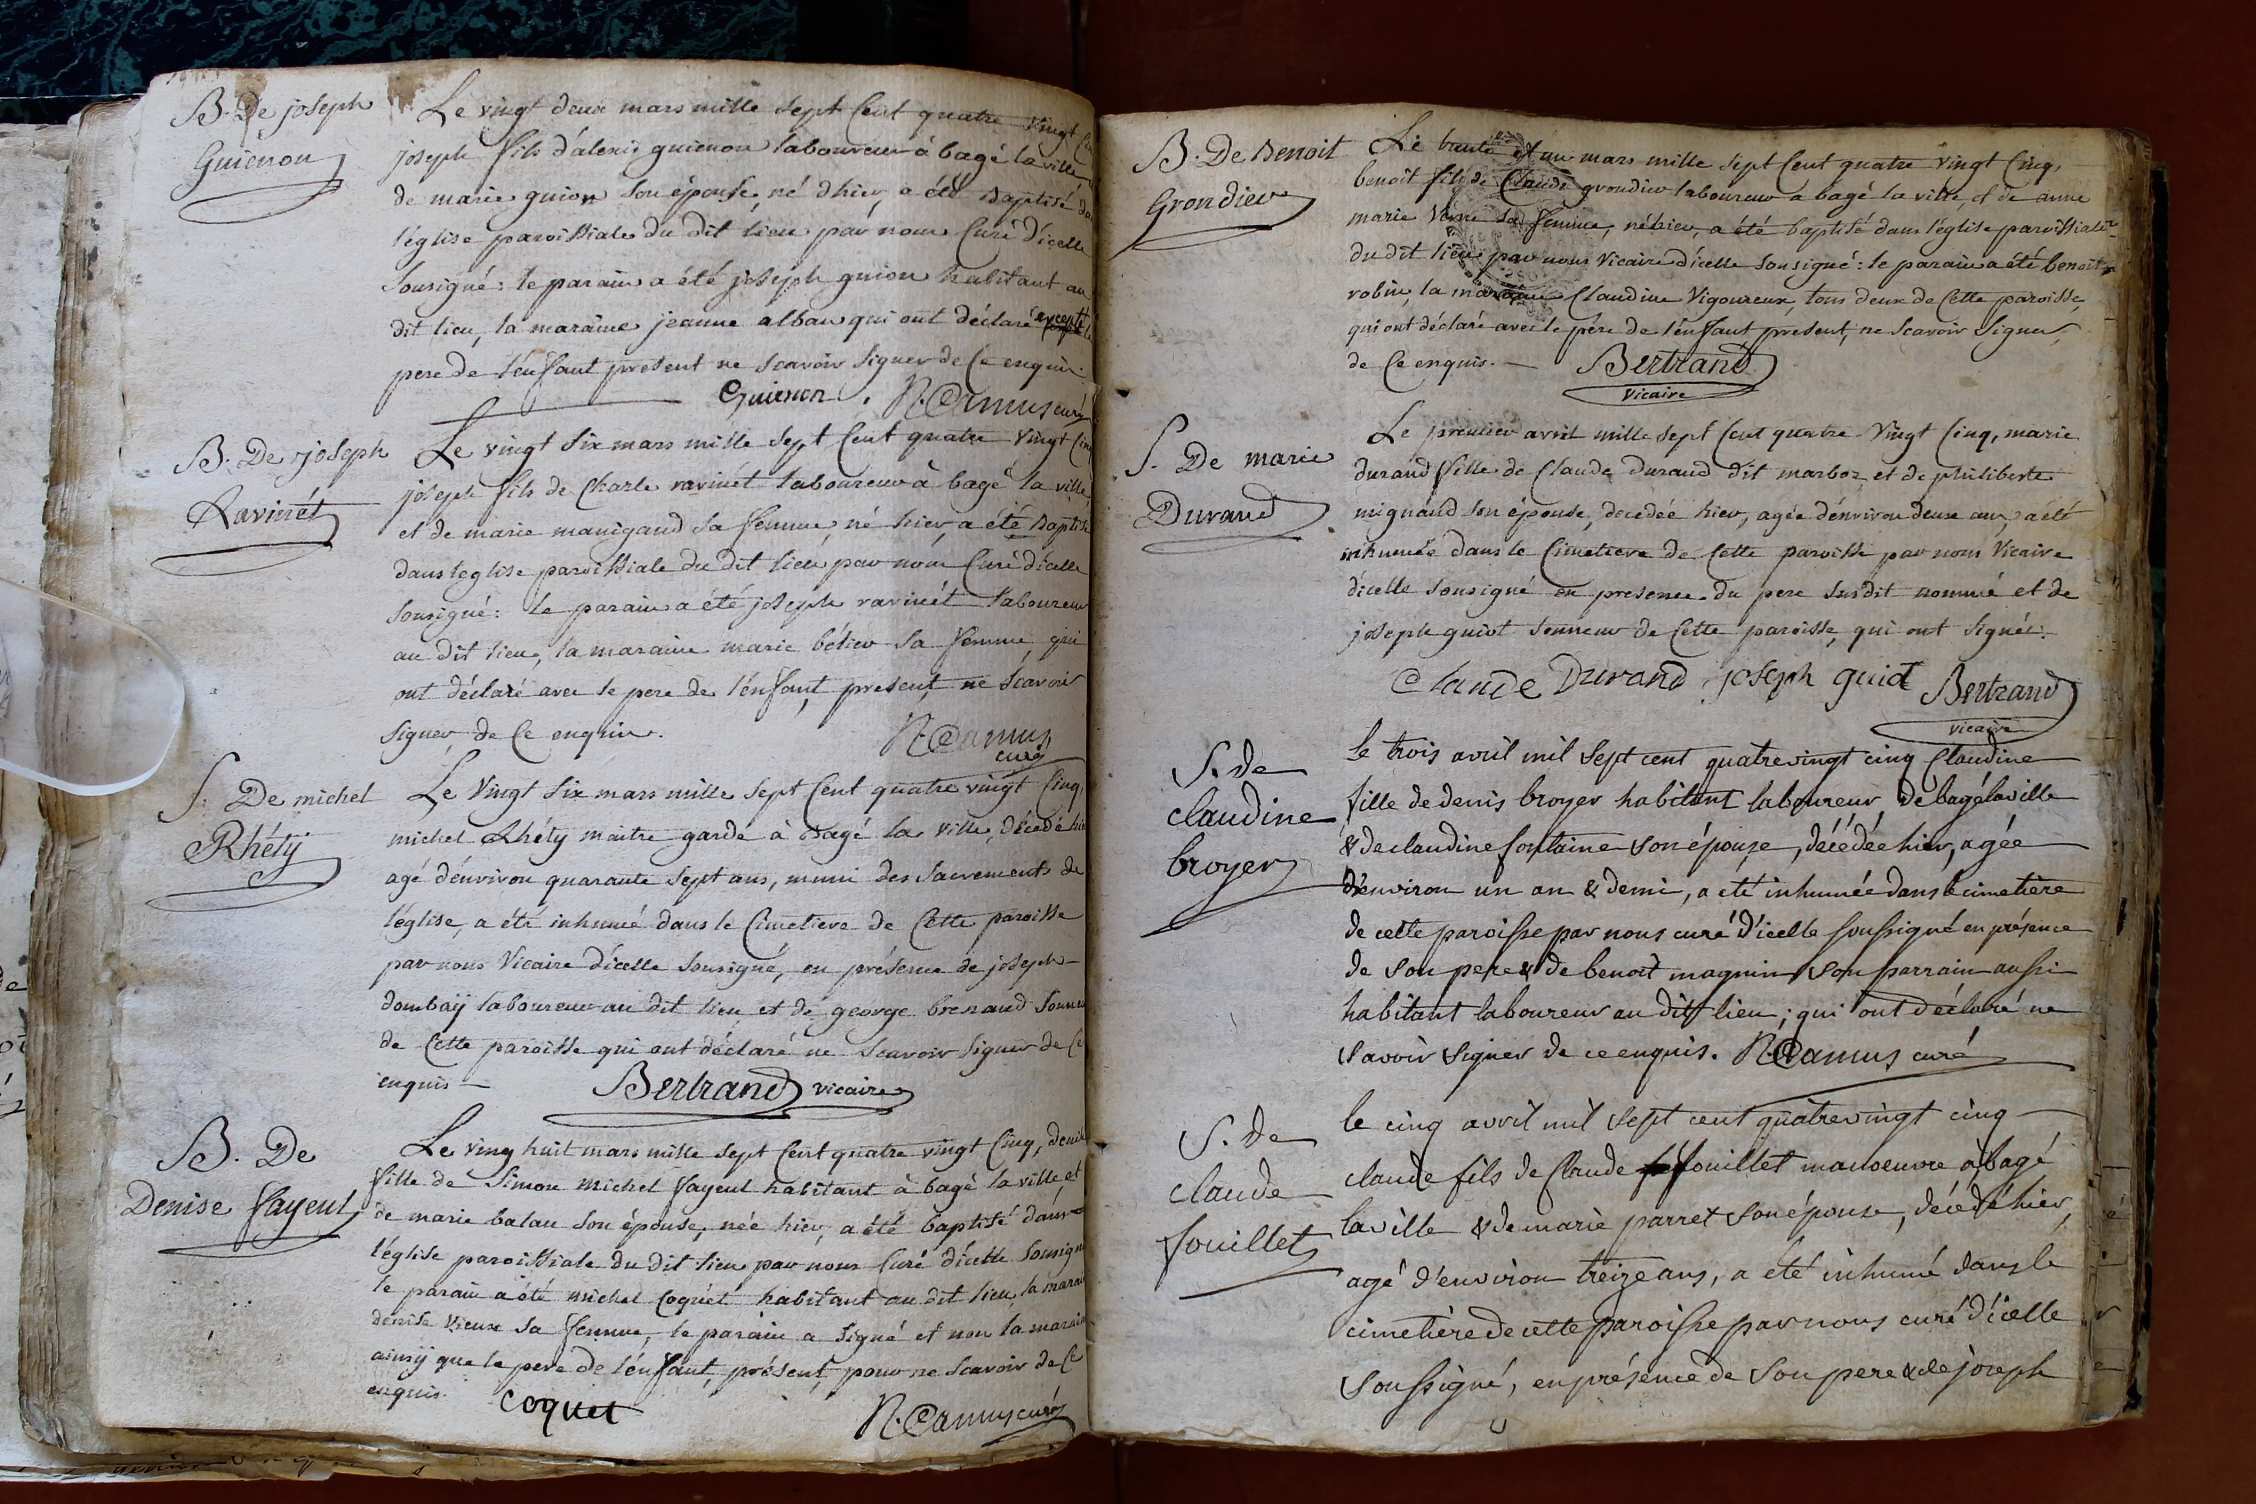 B. De joseph
Guienon
Le vingt deux mars mille sept Cent quatre vingt
joseph fils d'alexis guienon laboureur à bagé la ville
de marie guion son épouse, né d'hier, a été Baptisé
l'église paroissiale du dit lieu par nous Curé d'icelle
Sousigné : le parain a été joseph guion habitant au
dit lieu, la maraine jeanne alban qui ont déclaré excepté
pere de l'enfant present ne scavoir signer de Ce enquis.
Guienon. N. Camus curé
B. De joseph
Ravinét
Le vingt six mars mille sept Cent quatre vingt Cinq
joseph fils de Charle ravinét laboureur à bagé la ville,
et de marie manigand sa femme, né hier, a été Baptisé
dans l'eglise paroissiale du dit lieu par nous Curé d'icelle
Sousigné : le parain a été joseph ravinét laboureur
au dit lieu, la maraine marie bélier sa femme, qui
ont déclaré avec le pere de l'enfant, present, ne scavoir
signer de Ce enquis.
N. Camus
curé
S. De michel
Rhéty
Le Vingt six mars mille sept Cent quatre vingt Cinq,
michel Rhéty maitre garde à Bagé la ville, décédé hier
agé d'environ quarante sept ans, muni des Sacrements de
l'église, a été inhumé dans le Cimetiere de Cette paroisse
par nous Vicaire d'icelle sousigné, en présence de joseph
dombaÿ laboureur au dit lieu et de george brenaud
de Cette paroisse qui ont déclaré ne scavoir signer de Ce
enquis —
Bertrand vicaire
B. De
Denise fayeul
Le ving huit mars mille sept Cent quatre vingt Cinq, denise
fille de Simon michel fayeul habitant à bagé la ville, et
de marie balan son épouse, née hier, a été baptisé dans
l'église paroissiale du dit lieu par nous Curé d'icelle sousigné
le parain a été michel Coquét habitant au dit lieu, la maraine
denise vieux sa femme, le parain a signé et non la maraine
ainsÿ que le pere de l'enfant, présent, pour ne scavoir de Ce
enquis.
coquet
N. Camus curé
B. De Benoit
Grondier
Le trente et un mars mille sept Cent quatre vingt Cinq,
benoit fils de Claude grondier laboureur à bagé la ville, et de anne
marie sa femme, né hier, a été baptisé dans l'église paroissiale
du dit lieu par nous Vicaire d'icelle sousigné : le parain a été benoit
robin, la maraine Claudine Vigoureux, tous deux de Cette paroisse,
qui ont déclaré avec le pére de l'enfant present, ne scavoir signer
de Ce enquis. —
Bertrand
vicaire
S. De marie
Durand
Le premier avril mille sept Cent quatre Vingt Cinq, marie
durand fille de Claude durand dit marboz et de philiberte
mignand son épouse, décédée hier, agée d'environ deux ans, a été
inhumée dans le Cimetiere de Cette paroisse par nous Vicaire
d'icelle sousigné en presence du pere susdit nommé et de
joseph guiot sonneur de Cette paroisse, qui ont signés.
claude Durand joseph guiot Bertrand
vicaire
S. de
claudine
broyer
le trois avril mil sept cent quatrevingt cinq Claudine
fille de denis broyer habitant laboureur de bagélaville
& declaudine fontaine son épouse, décédée hier, agée
d'environ un an & demi, a été inhumée dans le cimetière
de cette paroisse par nous curé d'icelle soussigné en présence
de son pere & de benoit magnin son parrain aussi
habitant laboureur au dit lieu ; qui ont déclaré ne
savoir signer de ce enquis. N. Camus curé
S. de
claude
fouillet
le cinq avril mil sept cent quatrevingt cinq
claude fils de Claude fouillet manoeuvre à bagé
laville & de marie parret son épouse, décédé hier,
agé d'environ treize ans, a été inhumé dans le
cimetière de cette paroisse par nous curé d'icelle
soussigné, en présence de son pere & de joseph